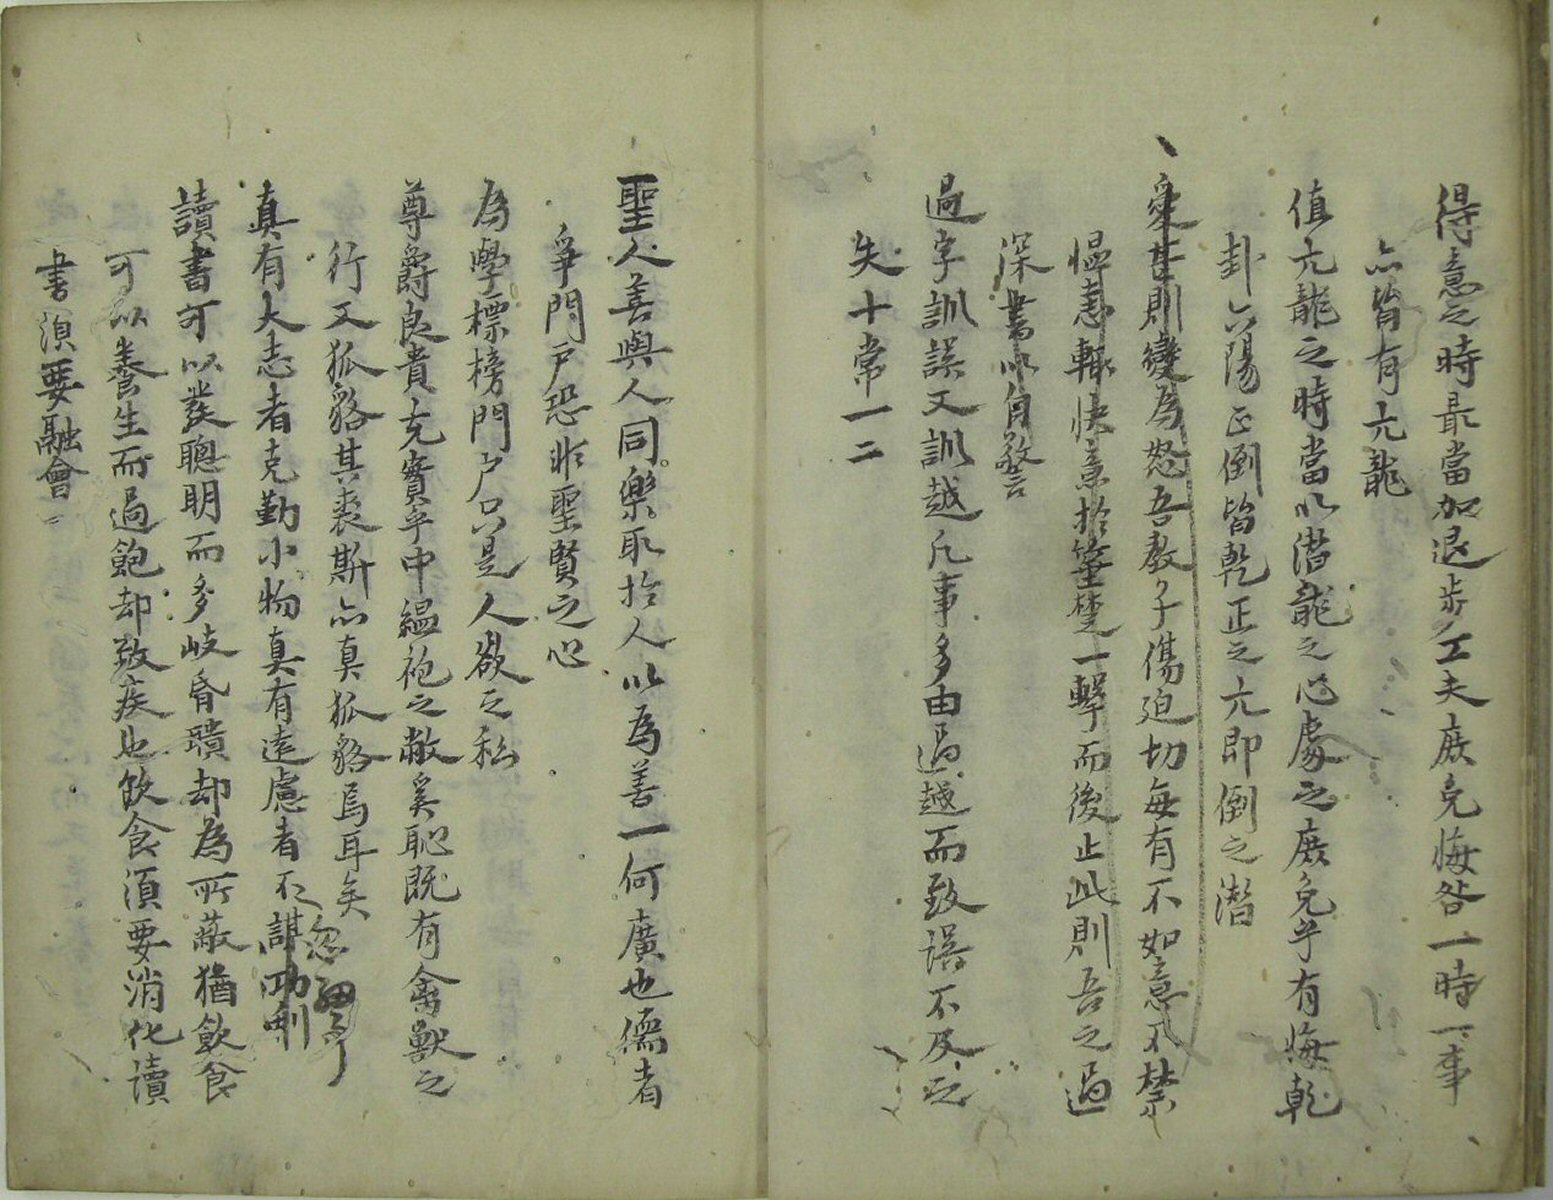 得意之時最當加退步工夫庶免悔咎一時一事
亦皆有亢龍
值亢龍之時當以潛龍之心處之庶免乎有悔乾
卦六陽正倒皆乾正之亢即倒之潛
愛甚則變為怒吾教子傷迫切每有不如意不禁
愠恚輒快意於箠楚一擊而後止此則吾之過
深書以自警
過字訓誤又訓越凡事多由過越而致誤不及之
失十常一二
聖人善與人同樂取於人以為善一何廣也儒者
爭門戶恐非聖賢之心
為學標榜門戶只是人欲之私
尊爵良貴充實乎中縕袍之敝奚恥既有禽獸之
行又狐貉其裘斯亦真狐貉焉耳矣
真有大志者克勤小物真有遠慮者不謀功利
忽細事
讀書可以發聰明而多岐昏聵却為所蔽猶飲食
可以養生而過飽却致疾也飲食須要消化讀
書須要融會